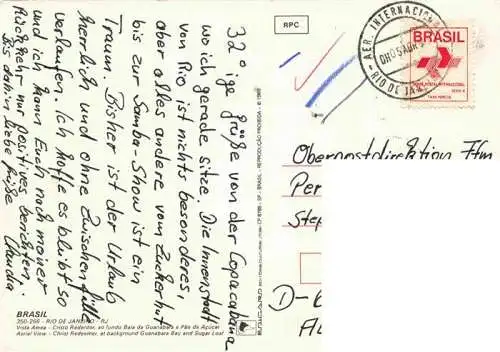 RPC
AER. INTERNACIONAL
RIO DE JAN
BRASIL
32° ige Grüße von der Copacabana
wo ich gerade sitze. Die Innenstadt
von Rio ist nichts besonderes,
aber alles andere vom Zuckerhut
bis zur Samba-Show ist ein
Traum. Bisher ist der Urlaub
herrlich und ohne Zwischenfälle
verlaufen. Ich hoffe es bleibt so
und ich kann Euch nach meiner
Rückkehr nur positives berichten.
Bis dahin liebe Grüße Claudia
Oberpostdirektion Ffm
Per
Step
D-6
BRASIL
RIO DE JANEIRO - RJ
Vista Aérea - Cristo Redentor, ao fundo Baía da Guanabara e Pão de Açúcar
Aerial View - Christ Redeemer, at background Guanabara Bay and Sugar Loaf